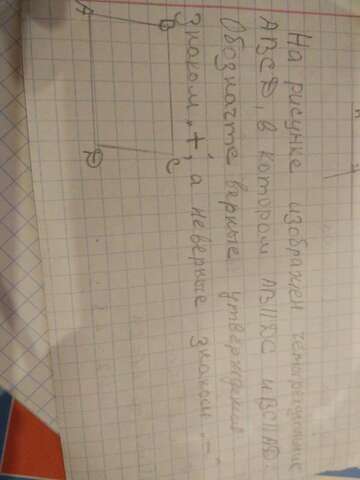 На рисунке изображён четырёхугольник
ABCD, в котором AB||DC и BC||AD.
Обозначте верные утверждения
знаком „+", а неверные знаком „-".
A
B
D
C